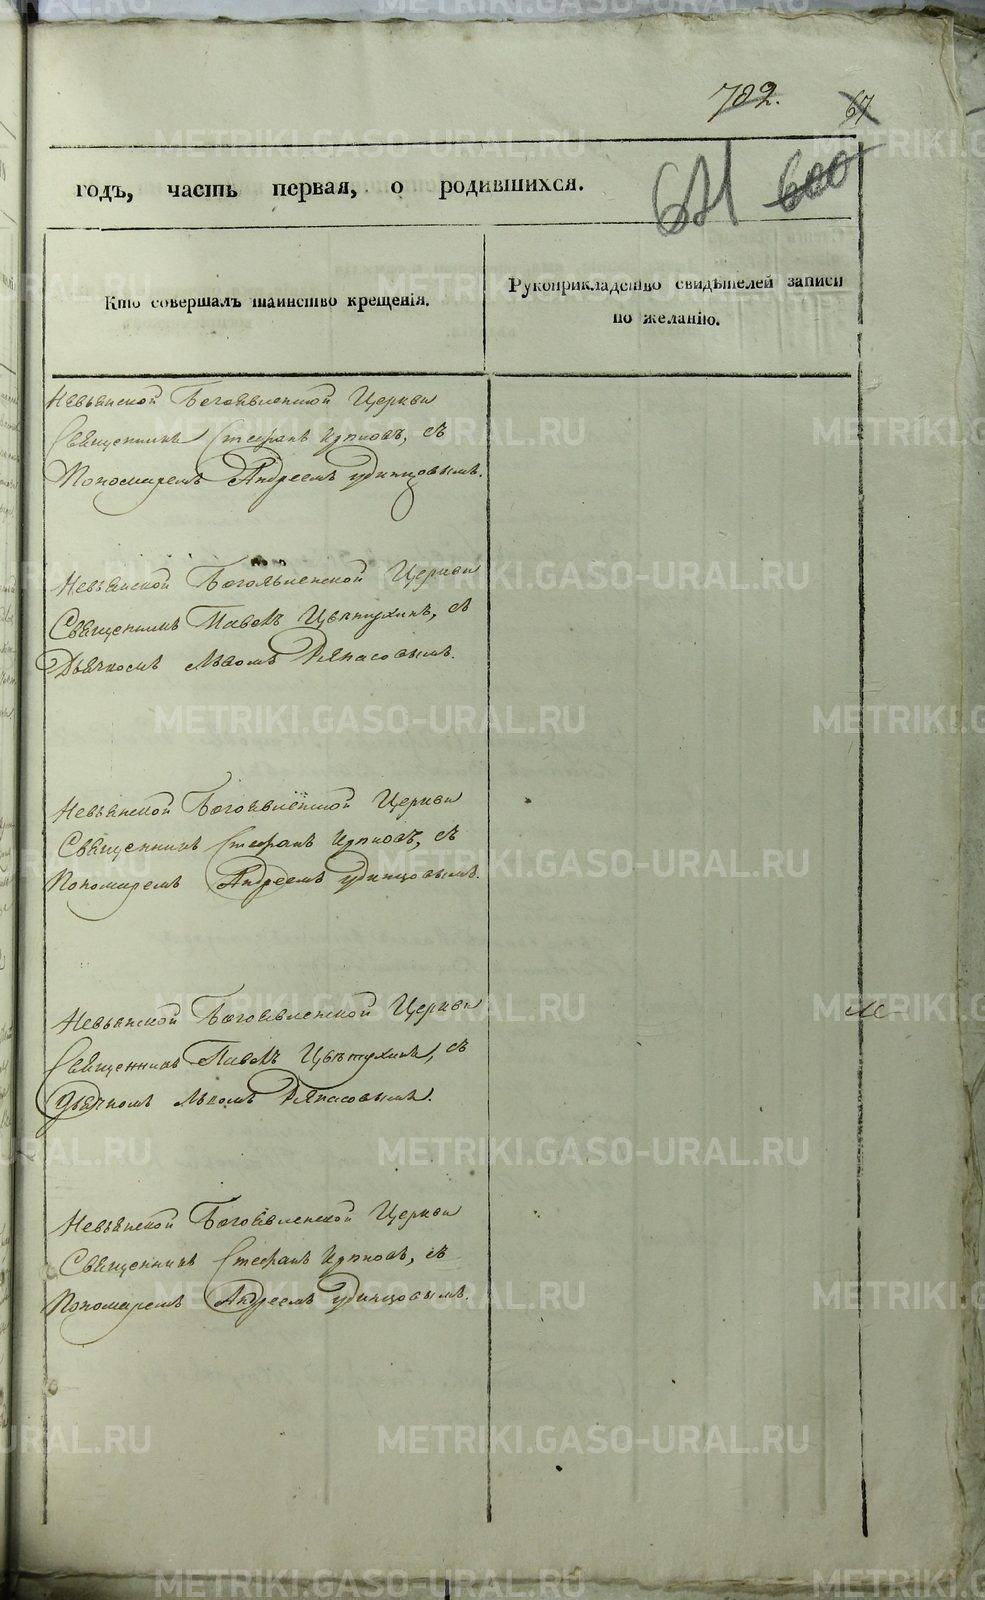 782.
67
годъ, часть первая, о родившихся.
621 600
Кто совершалъ таинство крещенія.
Рукоприкладство свидѣтелей записи
по желанію.
Невьянской Богоявленской Церкви
Священникъ Стефанъ съ
Пономаремъ Андреемъ Удинцовымъ.
Невьянской Богоявленской Церкви
Священникъ Павелъ Цвѣтухинъ, съ
Дьячкомъ Львомъ Ряпасовымъ.
Невьянской Богоявленской Церкви
Священникъ Стефанъ съ
Пономаремъ Андреемъ Удинцовымъ.
Невьянской Богоявленской Церкви
Священникъ Павелъ Цвѣтухинъ, съ
Дьячкомъ Львомъ Ряпасовымъ.
Невьянской Богоявленской Церкви
Священникъ Стефанъ съ
Пономаремъ Андреемъ Удинцовымъ.
METRIKI.GASO-URAL.RU